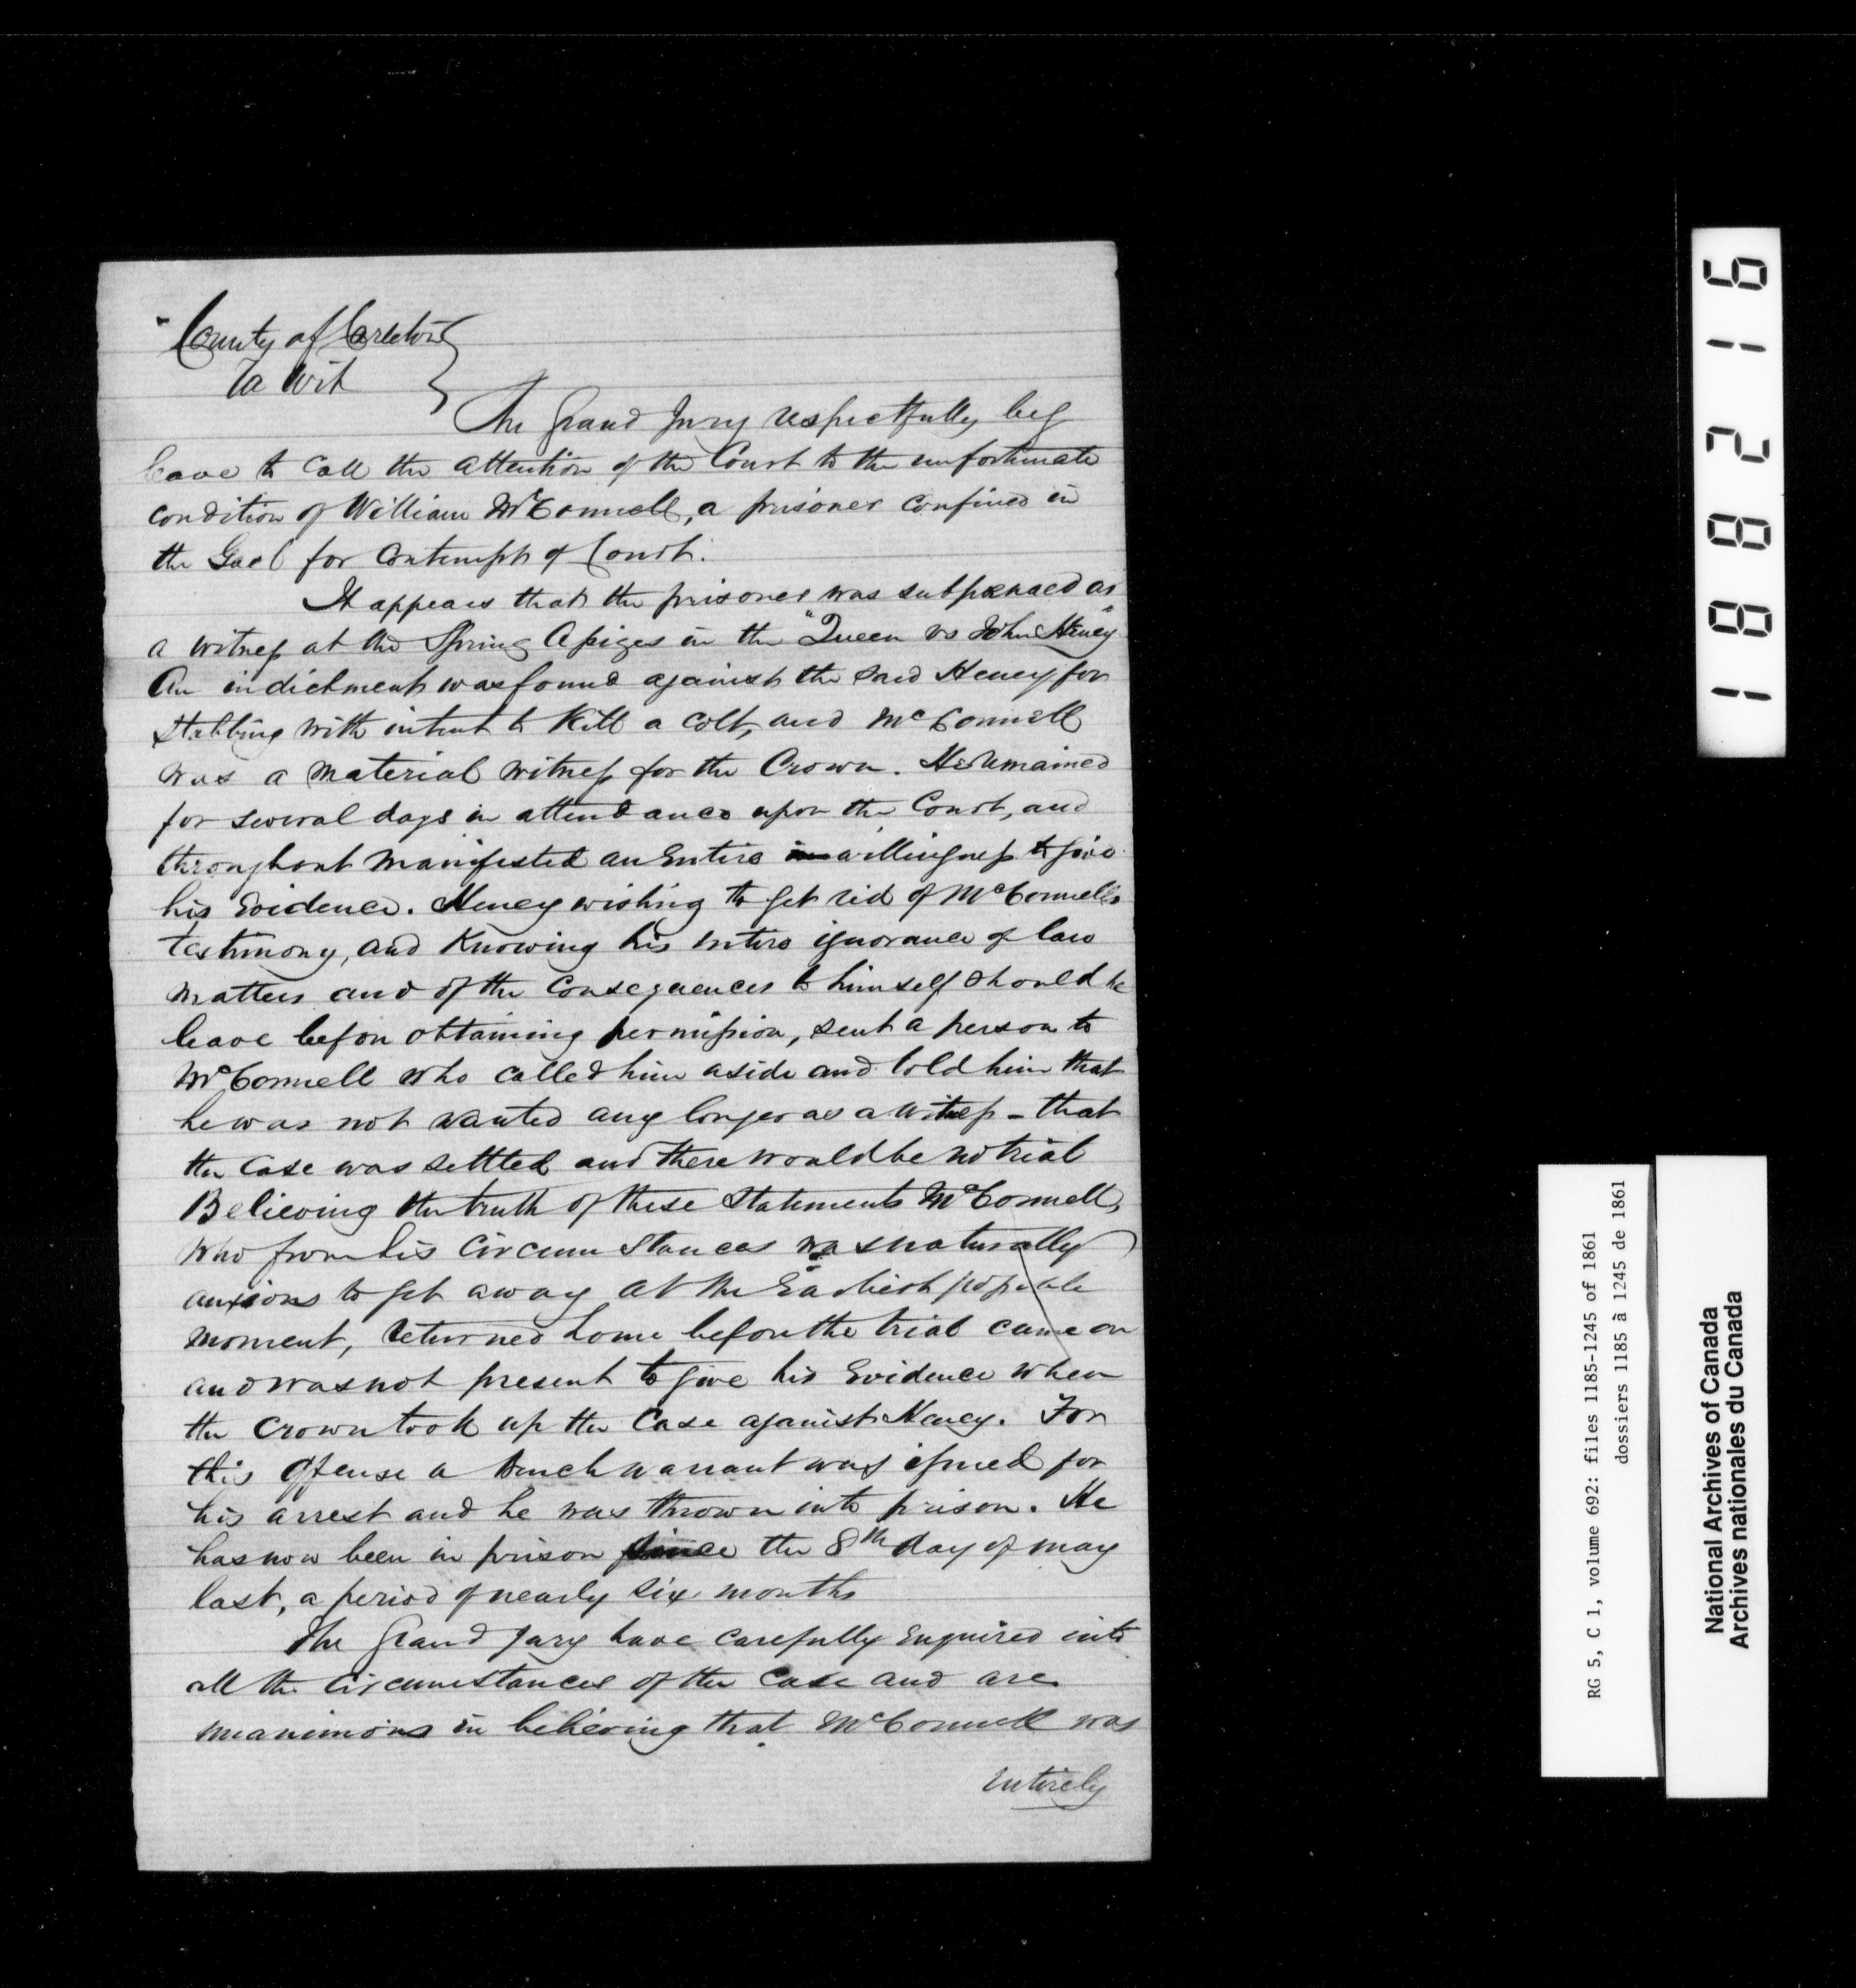 County of Carleton }
To Wit }
The Grand Jury respectfully beg
leave to call the attention of the Court to the unfortunate
condition of William McConnell, a prisoner confined in
the Gaol for Contempt of Court.
It appears that the prisoner was subpœnaed as
a witness at the Spring Assizes in the "Queen vs John Heney"
An indictment was found against the said Heney for
stabbing with intent to kill a colt, and McConnell
was a material witness for the Crown. He remained
for several days in attendance upon the Court, and
throughout manifested an Entire willingness to give
his Evidence. Heney wishing to get rid of McConnells
testimony, and Knowing his entire ignorance of law
matters and of the Consequences to himself should he
leave before obtaining permission, sent a person to
McConnell who called him aside and told him that
he was not wanted any longer as a witness - that
the Case was settled and there would be no trial
Believing the truth of these Statements McConnell,
who from his Circumstances was naturally
anxious to get away at the Earliest possible
moment, returned home before the trial came on
and was not present to give his Evidence when
the Crown took up the Case against Heney. For
this offense a bench warrant was issued for
his arrest and he was thrown into prison. He
has now been in prison since the 8th day of may
last, a period of nearly six months
The Grand Jury have carefully Enquired into
all the Circumstances of the Case and are
unanimous in believing that McConnell was
Entirely
188216
RG 5, C 1, volume 692: files 1185-1245 of 1861
dossiers 1185 à 1245 de 1861
National Archives of Canada
Archives nationales du Canada